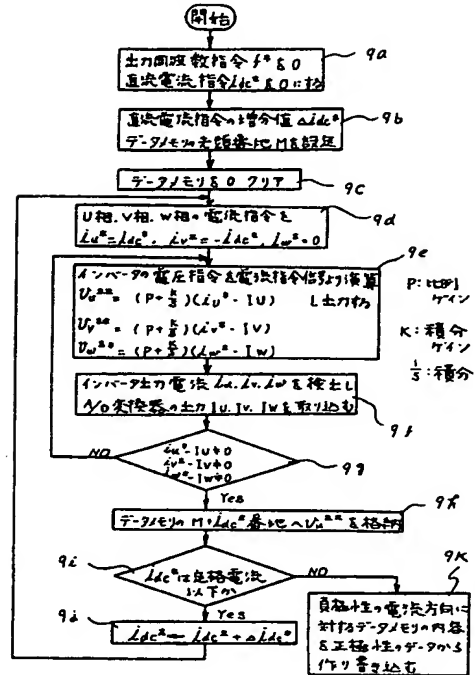 開始
出力周波数指令 f* を 0
直流電流指令 idc* を 0 にする
9a
直流電流指令の増分値 Δidc*
データメモリの先頭番地 M を設定
9b
データメモリを 0 クリア
9c
U相、V相、W相の電流指令を
iu*=idc*、iv*=-idc*、iw*=0
9d
インバータの電圧指令を電流指令信号より演算
し出力する
Vu** = (P+K/S)(iu*-IU)
Vv** = (P+K/S)(iv*-IV)
Vw** = (P+K/S)(iw*-IW)
9e
P:比例
ゲイン
K:積分
ゲイン
1/S:積分
インバータ出力電流 iu、iv、iw を検出し
A/D変換器の出力 IU、IV、IW を取り込む
9f
iu*-IU≒0
iv*-IV≒0
iw*-IW≒0
9g
NO
Yes
データメモリの M+idc* 番地へ Vu** を格納
9h
9i
idc* は定格電流
以下か
NO
Yes
9j
idc* ← idc* + Δidc*
9k
負極性の電流方向に
対するデータメモリの内容
を正極性のデータから
作り書き込む